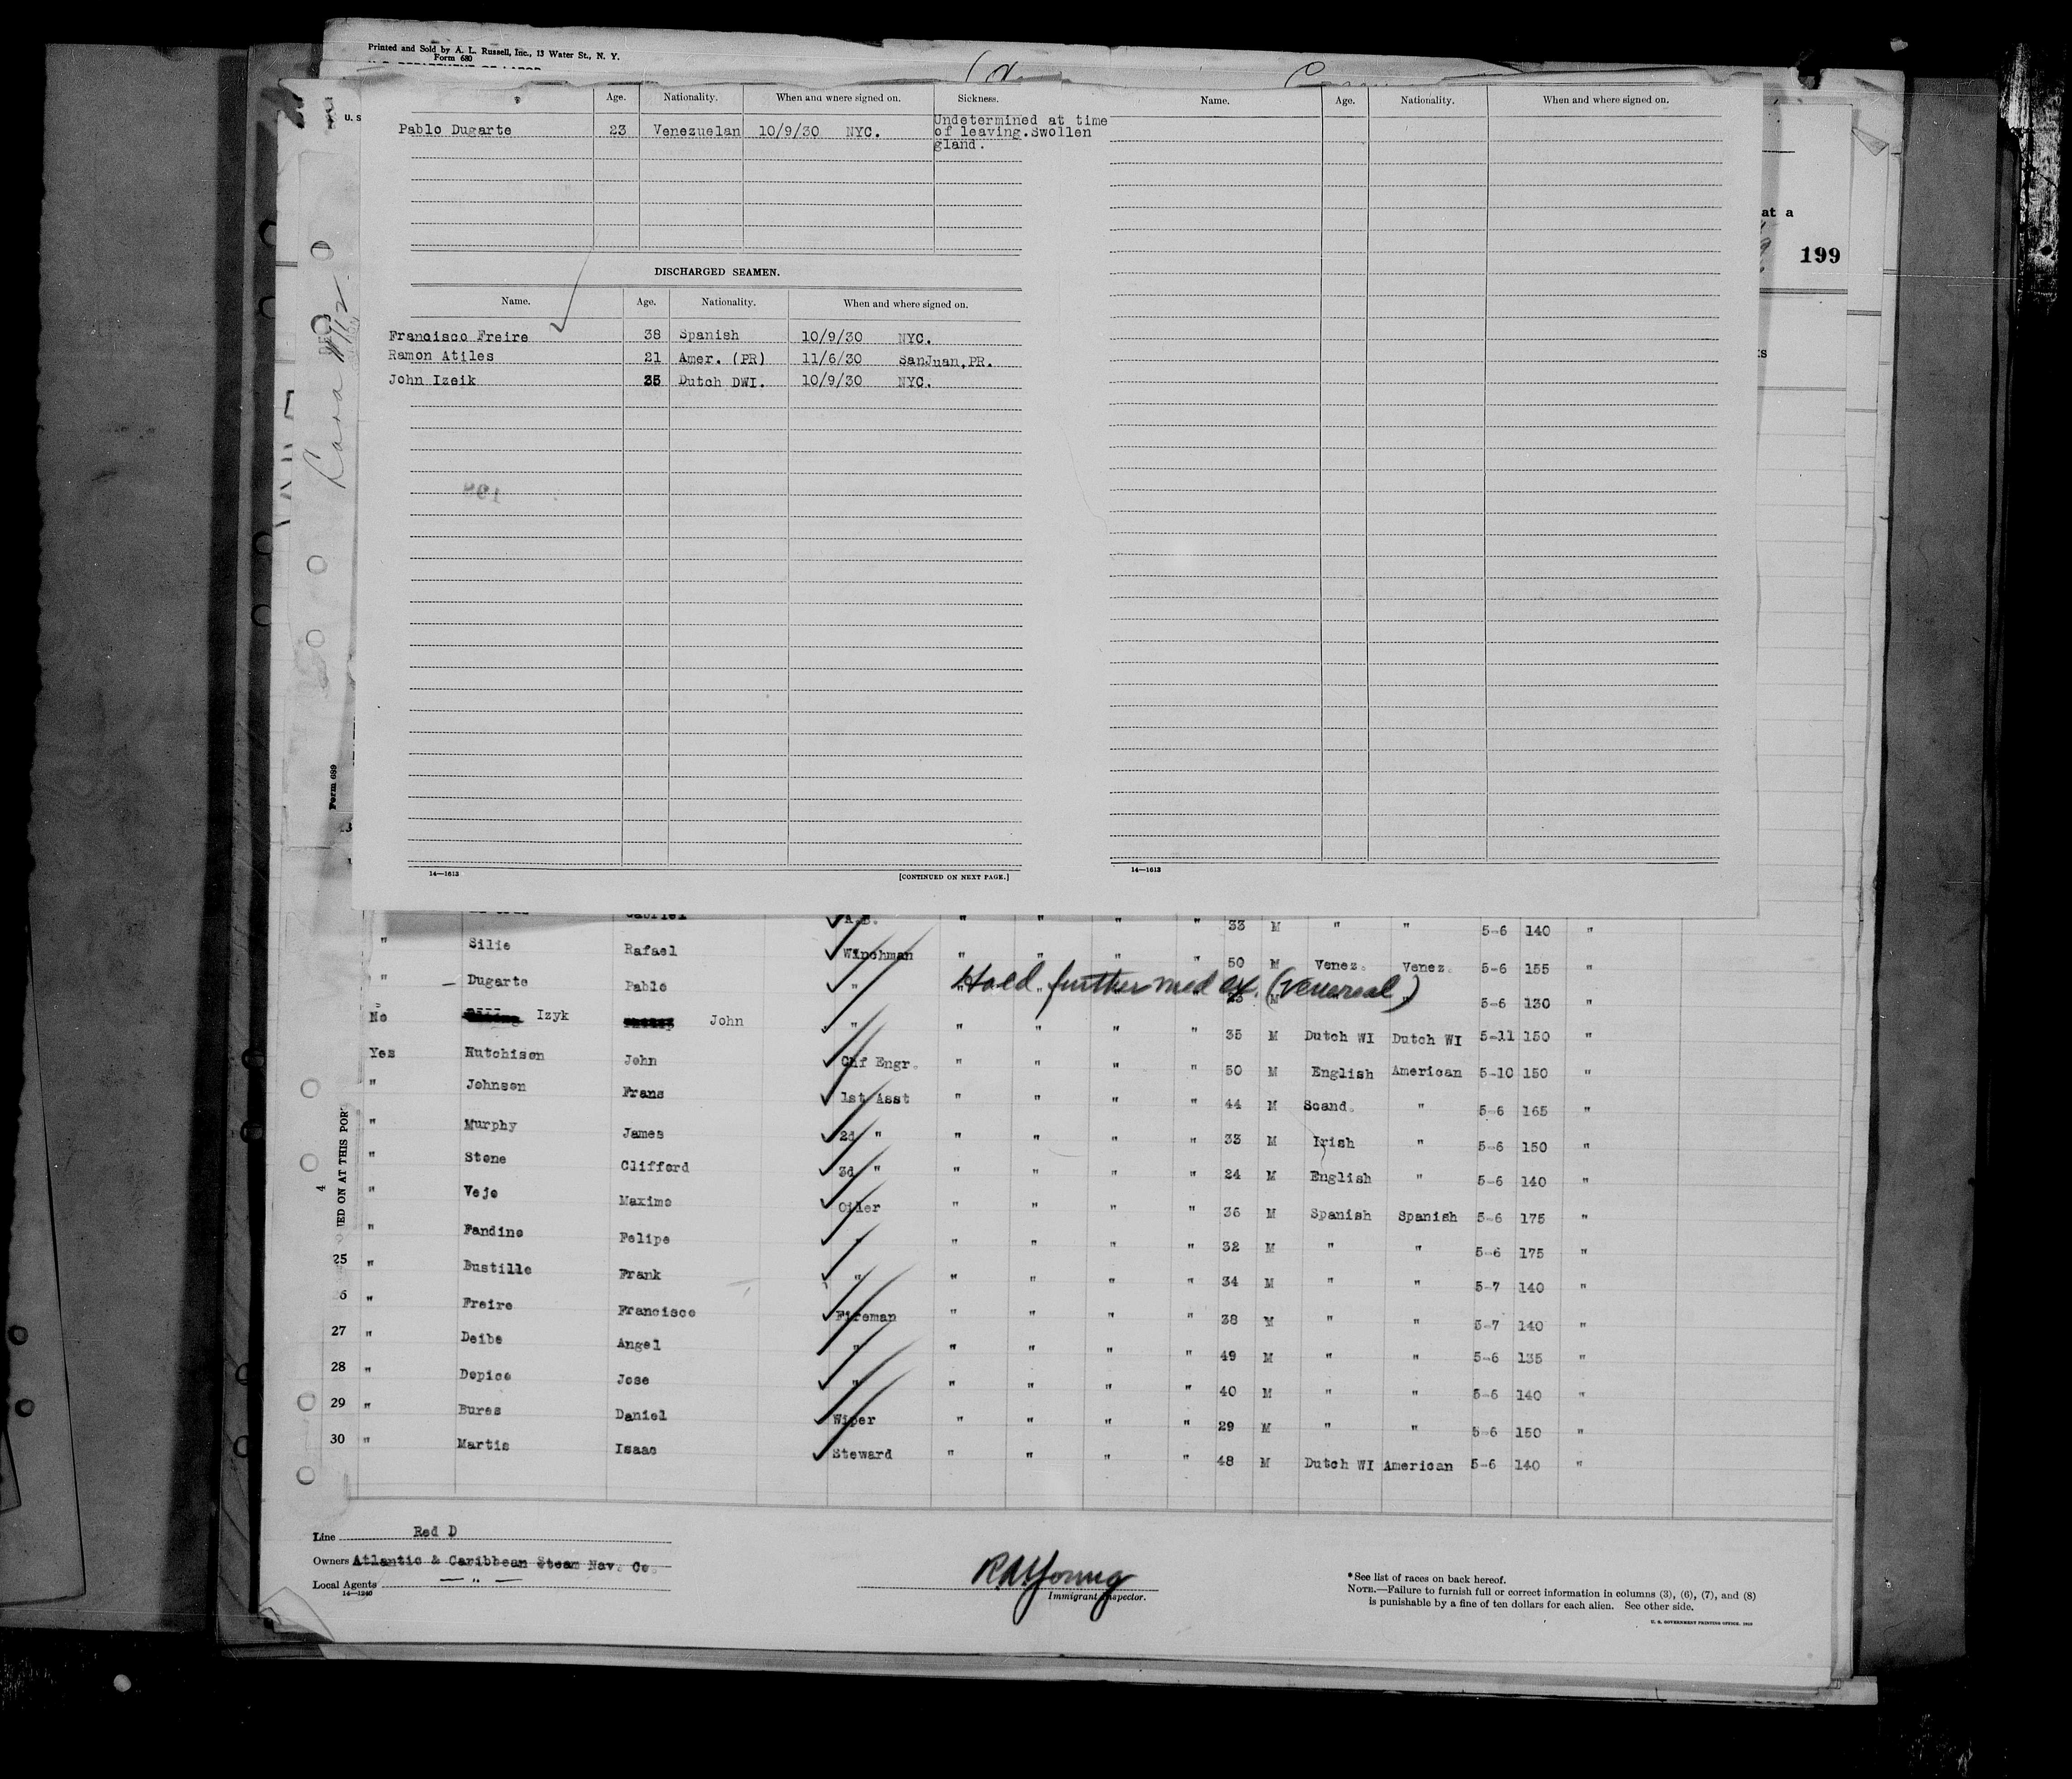 Printed and Sold by A. L. Russell, Inc., 13 Water St., N. Y.
Form 680
U. S
Age. Nationality. When and where signed on. Sickness.
Pablo Dugarte 23 Venezuelan 10/9/30 NYC. Undetermined at time
of leaving.Swollen
gland.
Name. Age. Nationality. When and where signed on.
at a
199
DISCHARGED SEAMEN.
Name. Age. Nationality. When and where signed on.
Francisco Freire 38 Spanish 10/9/30 NYC.
Ramon Atiles 21 Amer. (PR) 11/6/30 SanJuan,PR.
John Izeik 35 Dutch DWI. 10/9/30 NYC.
Form 689
14—1613 [CONTINUED ON NEXT PAGE.]
14—1613
Gabriel A.B. " " " " 33 M " " 5-6 140 "
" Silie Rafael Winchman " " " " 50 M Venez. Venez. 5-6 155 "
" Dugarte Pablo " Hold further med ex. (venereal) M 5-6 130 "
No Izyk John " " " " " 35 M Dutch WI Dutch WI 5-11 150 "
Yes Hutchison John Chf Engr. " " " " 50 M English American 5-10 150 "
" Johnson Frans 1st Asst " " " " 44 M Scand. " 5-6 165 "
" Murphy James 2d " " " " " 33 M Irish " 5-6 150 "
" Stone Clifford 3d " " " " " 24 M English " 5-6 140 "
" Vejo Maximo Oiler " " " " 36 M Spanish Spanish 5-6 175 "
" Fandino Felipe " " " " " 32 M " " 5-6 175 "
25 " Bustillo Frank " " " " " 34 M " " 5-7 140 "
6 " Freire Francisco Fireman " " " " 38 M " " 5-7 140 "
27 " Deibe Angel " " " " " 49 M " " 5-6 135 "
28 " Dopico Jose " " " " " 40 M " " 5-6 140 "
29 " Bures Daniel Wiper " " " " 29 M " " 5-6 150 "
30 " Martis Isaac Steward " " " " 48 M Dutch WI American 5-6 140 "
4
ED ON AT THIS POR
Line Red D
Owners Atlantic & Caribbean Steam Nav. Co.
Local Agents — " —
14—1240
R A Young
Immigrant Inspector.
*See list of races on back hereof.
NOTE.—Failure to furnish full or correct information in columns (3), (6), (7), and (8)
is punishable by a fine of ten dollars for each alien. See other side.
U. S. GOVERNMENT PRINTING OFFICE